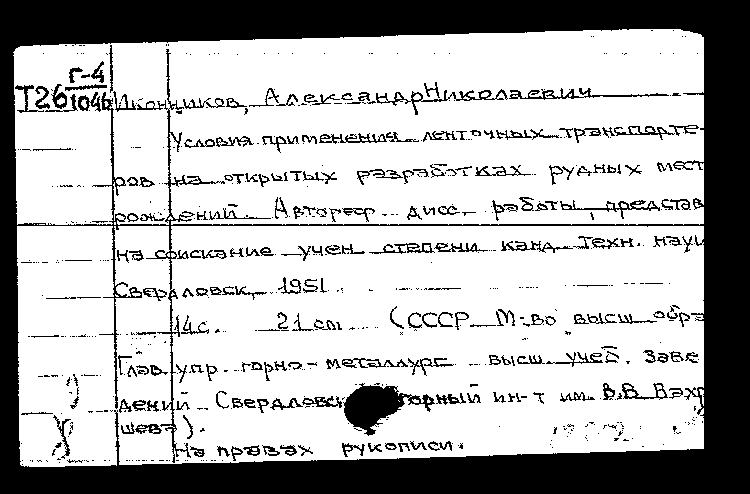 Г-4
Т26 1046 Иконников, Александр Николаевич
Условия применения ленточных транспорте-
ров на открытых разработках рудных мест
рождений. Автореф. дисс. работы, представ
на соискание учен степени канд. техн. наук
Свердловск, 1951.
14 с. 21 cm (СССР. М-во высш обра
Глав. упр. горно-металлург высш. учеб. заве
дений. Свердловск горный ин-т им. В.В. Вахр
шева).
На правах рукописи.